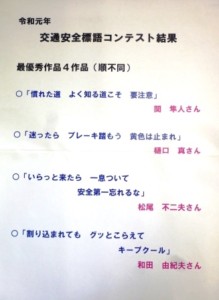 令和元年
交通安全標語コンテスト結果
最優秀作品4作品（順不同）
○「慣れた道　よく知る道こそ　要注意」
関　隼人さん
○「迷ったら　ブレーキ踏もう　黄色は止まれ」
樋口　真さん
○「いらっと来たら　一息ついて
安全第一忘れるな」
松尾　不二夫さん
○「割り込まれても　グッとこらえて
キープクール」
和田　由紀夫さん